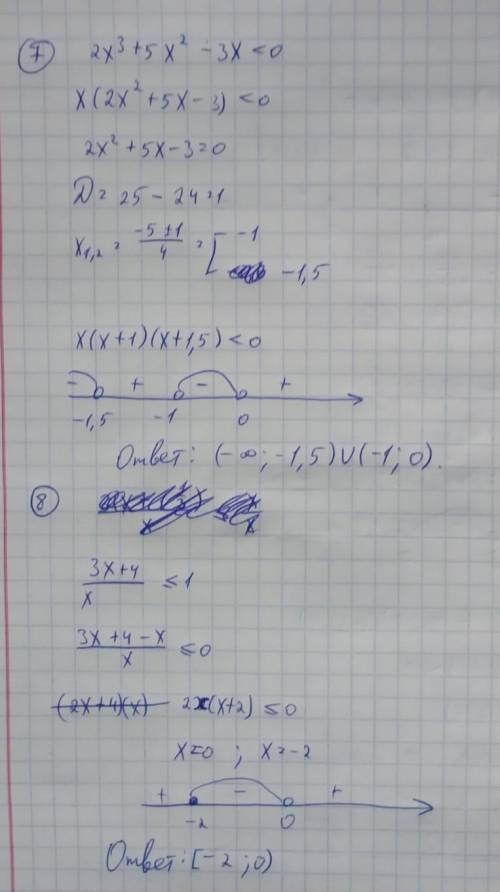 7 2x³ + 5x² - 3x < 0
x(2x² + 5x - 3) < 0
2x² + 5x - 3 = 0
D = 25 - 24 = 1
x₁,₂ = (-5±1)/4 = [ -1
-1,5
x(x+1)(x+1,5) < 0
- + - +
-1,5 -1 0
Ответ: (-∞; -1,5)∪(-1; 0).
8
(3x+4)/x ≤ 1
(3x+4-x)/x ≤ 0
(2x+4)(x) 2x(x+2) ≤ 0
x=0 ; x=-2
+ - +
-2 0
Ответ: [-2 ; 0)